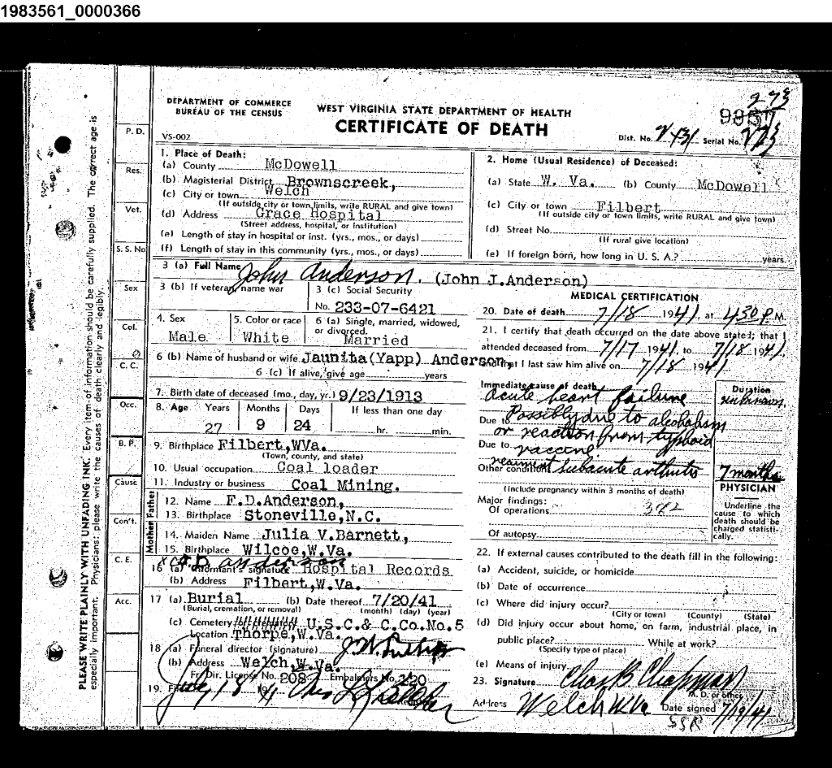 1983561_0000366
273
DEPARTMENT OF COMMERCE
BUREAU OF THE CENSUS
WEST VIRGINIA STATE DEPARTMENT OF HEALTH
CERTIFICATE OF DEATH
VS-002
Dist. No. 2431 Serial No.
1. Place of Death:
(a) County McDowell
(b) Magisterial District Brownscreek,
(c) City or town Welch
(If outside city or town limits, write RURAL and give town)
(d) Address Grace Hospital
(Street address, hospital, or institution)
(e) Length of stay in hospital or inst. (yrs., mos., or days)
(f) Length of stay in this community (yrs., mos., or days)
2. Home (Usual Residence) of Deceased:
(a) State W. Va. (b) County McDowell
(c) City or town Filbert
(If outside city or town limits, write RURAL and give town)
(d) Street No.
(If rural give location)
(e) If foreign born, how long in U. S. A.? years
3 (a) Full Name John Anderson. (John J.Anderson)
3 (b) If veteran, name war
3 (c) Social Security
No. 233-07-6421
4. Sex
Male
5. Color or race
White
6 (a) Single, married, widowed, or divorced.
Married
6 (b) Name of husband or wife Jaunita(Yapp) Anderson
6 (c) If alive, give age years
7. Birth date of deceased (mo., day, yr.) 9/23/1913
8. Age Years Months Days If less than one day
27 9 24 hr. min.
9. Birthplace Filbert,WVa.
(Town, county, and state)
10. Usual occupation Coal loader
11. Industry or business Coal Mining.
Father
12. Name F.D.Anderson,
13. Birthplace Stoneville,N.C.
Mother
14. Maiden Name Julia V.Barnett,
15. Birthplace Wilcoe,W.Va.
16 (a) Informant's signature Hospital Records
(b) Address Filbert,W.Va.
17 (a) Burial (b) Date thereof 7/20/41
(Burial, cremation, or removal) (month) (day) (year)
(c) Cemetery U.S.C.& C.Co.No.5
Location Thorpe,W.Va.
18 (a) Funeral director (signature)
(b) Address Welch,W.Va.
Fu. Dir. License No. 208 Embalmers No. 220
19.
MEDICAL CERTIFICATION
20. Date of death 7/18 1941, at 4:30 P.M.
21. I certify that death occurred on the date above stated; that I
attended deceased from 7/17 1941 to 7/18 1941.
and that I last saw him alive on 7/18 1941
Immediate cause of death
Duration
Acute heart failure unknown.
Due to Possibly due to alcoholism
or reaction from typhoid
Due to vaccine
Other conditions subacute arthritis 7 months
(Include pregnancy within 3 months of death)
PHYSICIAN
Underline the cause to which death should be charged statistically.
Major findings:
Of operations
Of autopsy
22. If external causes contributed to the death fill in the following:
(a) Accident, suicide, or homicide
(b) Date of occurrence
(c) Where did injury occur?
(City or town) (County) (State)
(d) Did injury occur about home, on farm, industrial place, in
public place? While at work?
(Specify type of place)
(e) Means of injury
23. Signature Chas B. Chapman
M. D. or other
Address Welch WVa Date signed 7/19/41
SSR
P. D.
Res.
Vet.
S. S. No.
Sex
Col.
C. C.
Occ.
B. P.
Cause
Con't.
C. E.
Acc.
PLEASE WRITE PLAINLY WITH UNFADING INK. Every item of information should be carefully supplied. The correct age is
especially important. Physicians: please write the causes of death clearly and legibly.